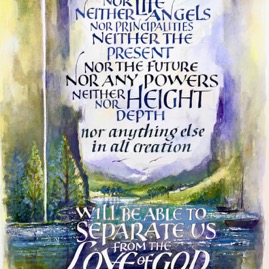 NOR LIFE
NEITHER ANGELS
NOR PRINCIPALITIES
NEITHER THE
PRESENT
NOR THE FUTURE
NOR ANY POWERS
NEITHER
NOR HEIGHT
DEPTH
nor anything else
in all creation
WILL BE ABLE TO
SEPARATE US
FROM THE
LOVE OF GOD